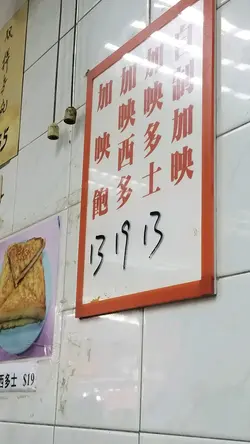 自制加映
加映多士
加映西多
加映飽
13 19 13
西多士 $19